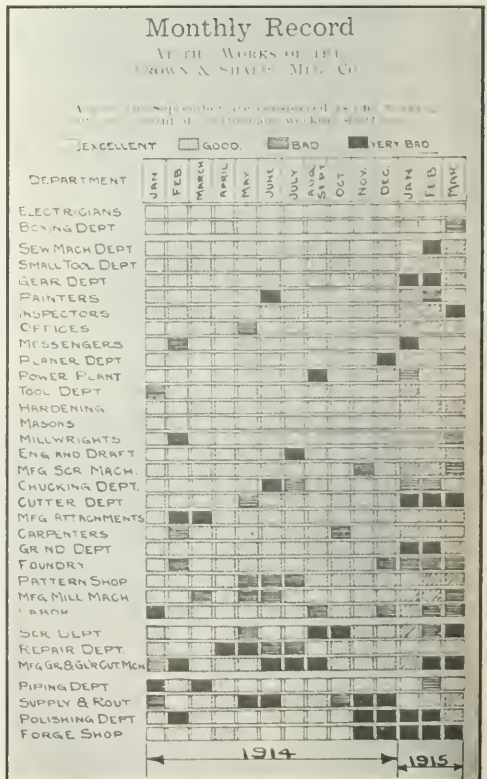 Monthly Record
AT THE WORKS OF THE
BROWN & SHARPE MFG. CO.
September are considered as one
EXCELLENT GOOD. BAD VERY BAD
DEPARTMENT JAN FEB. MARCH APRIL MAY JUNE JULY AUG. SEPT OCT NOV. DEC. JAN FEB MAR.
ELECTRICIANS
BOXING DEPT
SEW MACH DEPT
SMALL TOOL DEPT
GEAR DEPT
PAINTERS
INSPECTORS
OFFICES
MESSENGERS
PLANER DEPT
POWER PLANT
TOOL DEPT
HARDENING
MASONS
MILLWRIGHTS
ENG AND DRAFT
MFG SCR MACH.
CHUCKING DEPT.
CUTTER DEPT
MFG ATTACHMENTS
CARPENTERS
GRIND DEPT
FOUNDRY
PATTERN SHOP
MFG MILL MACH
LABOR
SCR DEPT
REPAIR DEPT.
MFG GR & GL'R CUT MCH
PIPING DEPT
SUPPLY & ROUT
POLISHING DEPT
FORGE SHOP
1914 1915